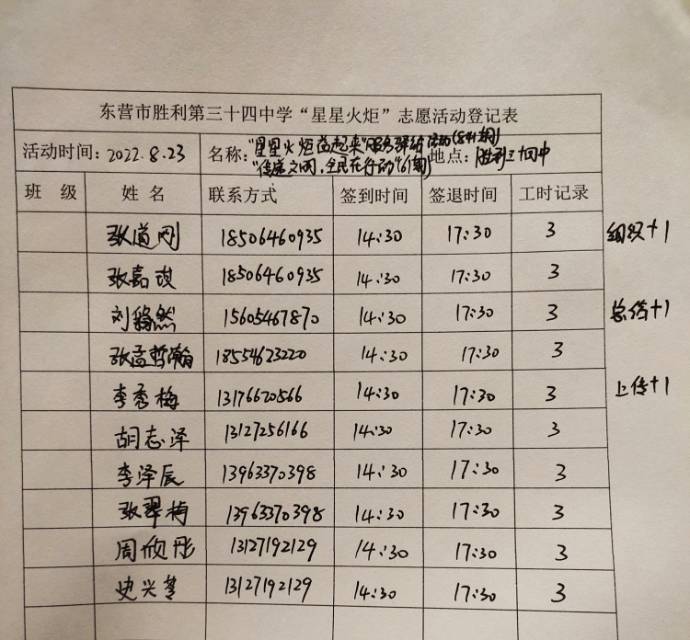 东营市胜利第三十四中学“星星火炬”志愿活动登记表
活动时间:2022.8.23 名称:"星星火炬 起来" 活动(841期) 地点:胜利三十四中
"传递文明,全民在行动"(61期)
班 级 姓 名 联系方式 签到时间 签退时间 工时记录
张道刚 18506460935 14:30 17:30 3 组织+1
张嘉 18506460935 14:30 17:30 3
刘 然 15605467870 14:30 17:30 3 总结+1
张孟哲瀚 18554623220 14:30 17:30 3
李秀梅 13176620566 14:30 17:30 3 上传+1
胡志泽 13127256166 14:30 17:30 3
李泽辰 13963370398 14:30 17:30 3
张翠梅 13963370398 14:30 17:30 3
周欣彤 13127192129 14:30 17:30 3
史兴 13127192129 14:30 17:30 3